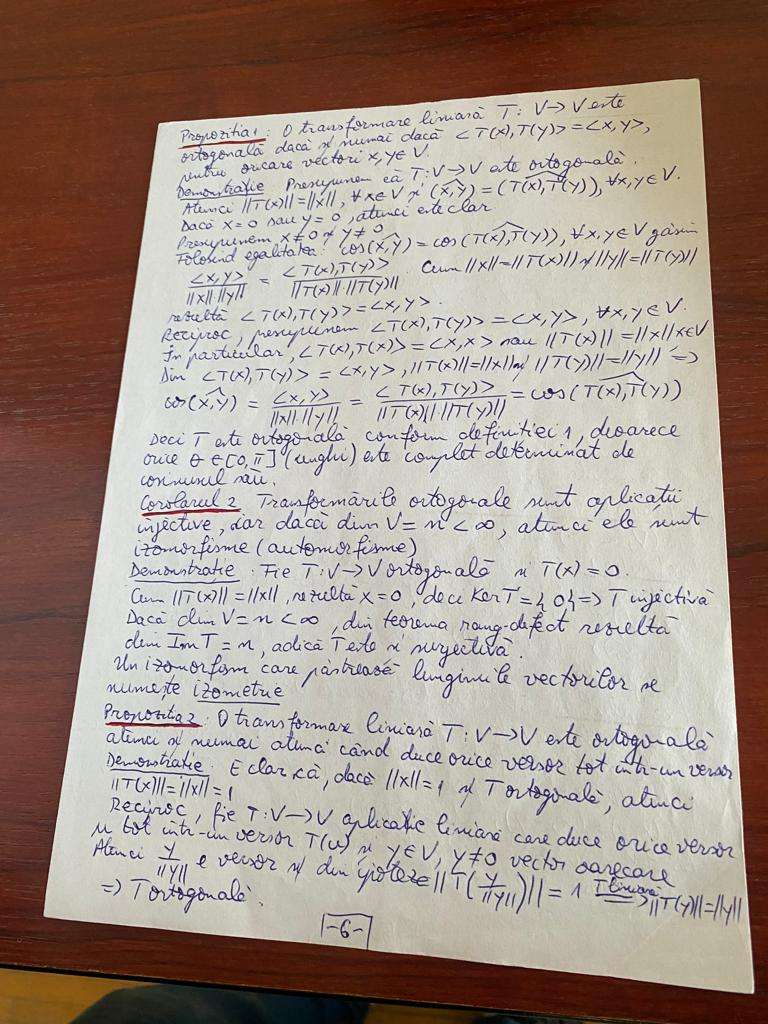 Propoziția 1: O transformare liniară T: V→V este
ortogonală dacă și numai dacă <T(x),T(y)>=<x,y>,
pentru oricare vectori x,y∈V.
Demonstrație Presupunem că T:V→V este ortogonală.
Atunci ||T(x)||=||x||, ∀x∈V și (x,y)=(T(x),T(y)), ∀x,y∈V.
Dacă x=0 sau y=0, atunci este clar
Presupunem x≠0 și y≠0
Folosind egalitatea: cos(x,y)=cos(T(x),T(y)), ∀x,y∈V găsim
<x,y>/||x||·||y|| = <T(x),T(y)>/||T(x)||·||T(y)||. Cum ||x||=||T(x)|| și ||y||=||T(y)||
rezultă <T(x),T(y)>=<x,y>.
Reciproc, presupunem <T(x),T(y)>=<x,y>, ∀x,y∈V.
În particular, <T(x),T(x)>=<x,x> sau ||T(x)||=||x|| x∈V
Din <T(x),T(y)>=<x,y>, ||T(x)||=||x|| și ||T(y)||=||y|| =>
cos(x,y) = <x,y>/||x||·||y|| = <T(x),T(y)>/||T(x)||·||T(y)|| = cos(T(x),T(y))
Deci T este ortogonală conform definiției 1, deoarece
orice θ∈[0,π] (unghi) este complet determinat de
cosinusul său.
Corolarul 2 Transformările ortogonale sunt aplicații
injective, iar dacă dim V=n<∞, atunci ele sunt
izomorfisme (automorfisme)
Demonstrație: Fie T:V→V ortogonală și T(x)=0.
Cum ||T(x)||=||x||, rezultă x=0, deci KerT={0}=> T injectivă
Dacă dim V=n<∞, din teorema rang-defect rezultă
dim Im T=n, adică T este și surjectivă.
Un izomorfism care păstrează lungimile vectorilor se
numește izometrie
Propoziția 2: O transformare liniară T:V→V este ortogonală
atunci și numai atunci când duce orice versor tot într-un versor
Demonstrație. E clar că, dacă ||x||=1 și T ortogonală, atunci
||T(x)||=||x||=1
Reciproc, fie T:V→V aplicație liniară care duce orice versor
u tot într-un versor T(u) și y∈V, y≠0 vector oarecare
Atunci y/||y|| e versor și din ipoteză ||T(y/||y||)||=1 T liniară => ||T(y)||=||y||
=> T ortogonală.
-6-